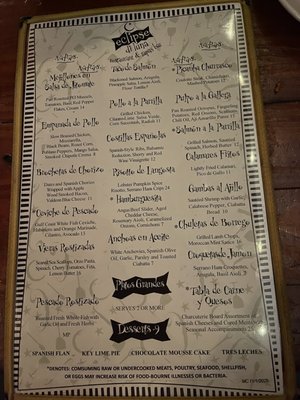 eclipse
di luna
restaurant & tapas bar
Tapas
Tapas
Tapas
Mejillones en
Salsa de Tomate
Pan Roasted PEI Mussels,
Tomatoes, Basil, Red Pepper
Flakes, Cream
Empanada de Pollo
Slow Roasted Chicken,
Black Beans, Roast Corn,
Poblano Peppers, Mango Salsa,
Smoked Chipotle Crema 8
Brochetas de Chorizo
Dates and Spanish Chorizo
Wood Smoked Bacon,
Valdeon Blue Cheese 11
*Ceviche de Pescado
Gulf Coast White Fish Ceviche,
Habanero and Mango Marinade,
Cilantro, Avocado 13
Vieras Rostizadas
Seared Sea Scallops, Orzo Pasta,
Spinach, Cherry Tomatoes, Feta,
Lemon Butter 16
Pescado Rostizado
Roasted Fresh White Fish with
Garlic Oil and Fresh Herbs
MP
Taco de Salmón
Blackened Salmon, Arugula,
Pineapple Salsa, Lemon Aioli,
Flour Tortilla
Pollo a la Parrilla
Grilled Chicken,
Chimichurri, Salsa Verde,
Corn Succotash, Radish
Costillas Españolas
Spanish-Style Ribs, Balsamic
Reduction, Sherry and Red
Wine Vinaigrette 12
Risotto de Langosta
Lobster Pumpkin Spice
Risotto, Serrano Ham Crispy 24
*Hamburguesita
Angus Beef Slider, Aged
Cheddar Cheese,
Rosemary Aioli, Caramelized
Onions, Cornichons 7
Anchoas en Aceite
White Anchovies, Spanish Olive
Oil, Garlic, Parsley and Toasted
Ciabatta 7
Platos Grandes
SERVES 2 OR MORE
Desserts -9
*Picanha Churrasco
Pulpo a la Gallega
Pan Roasted Octopus, Fingerling
Potatoes, Red Onions, Scallions,
Chili Oil, Ají Amarillo Puree 17
*Salmón a la Parrilla
Grilled Salmon, Sautéed
Spinach, Herbed Butter 12
Calamares Fritos
Lightly Fried Calamari,
Pico de Gallo 11
Gambas al Ajillo
Sautéed Shrimp with Garlic,
Calabrese Pepper, Ciabatta
Bread 10
*Chuletas de Borrego
Grilled Lamb Chops,
Moroccan Mint Salsa
Croquetas de Jamón
Serrano Ham Croquettes,
Arugula, Basil Aioli
Tabla de Carne
y Quesos
Charcuterie Board Assortment of
Spanish Cheeses and Cured Meats,
Seasonal Accompaniments 25
SPANISH FLAN KEY LIME PIE CHOCOLATE MOUSSE CAKE TRES LECHES
*DENOTES: CONSUMING RAW OR UNDERCOOKED MEATS, POULTRY, SEAFOOD, SHELLFISH,
OR EGGS MAY INCREASE RISK OF FOOD-BOURNE ILLNESSES OR BACTERIA.